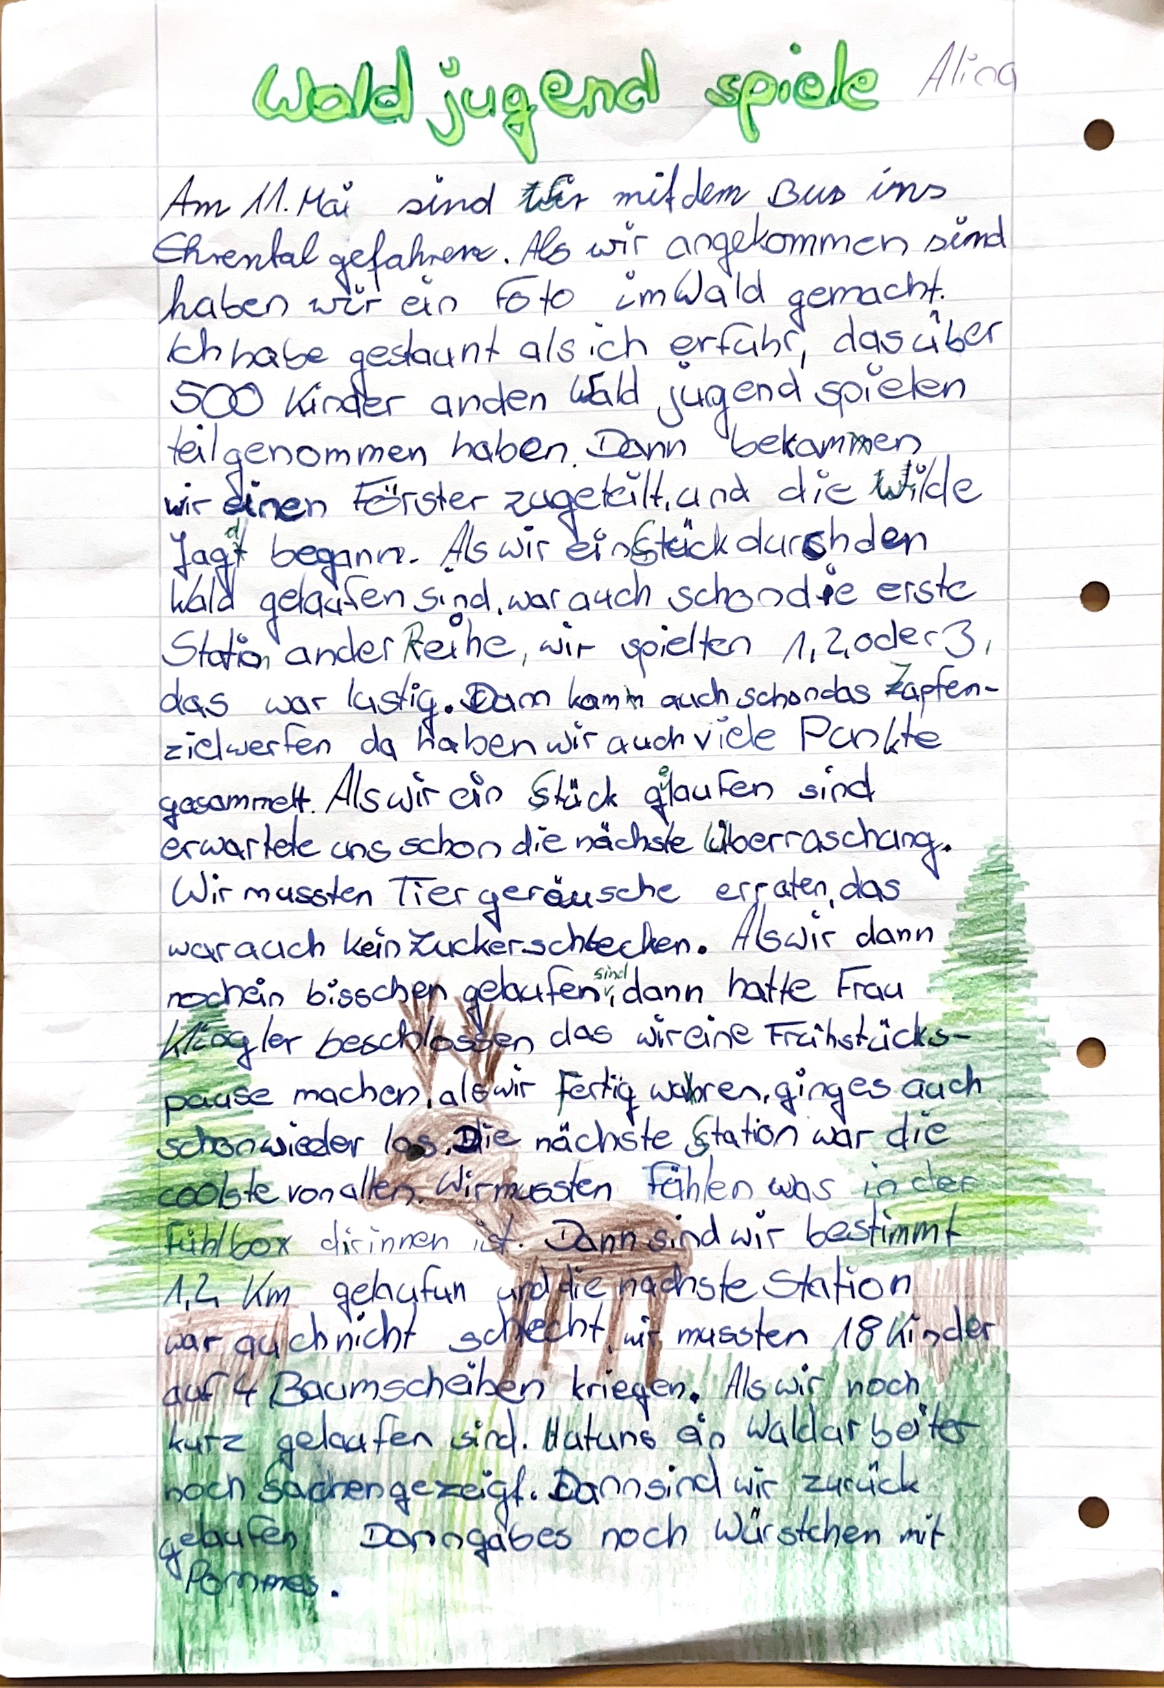 Wald jugend spiele Alina
Am 11. Mai sind wir mit dem Bus ins
Ehrental gefahren. Als wir angekommen sind
haben wir ein Foto im Wald gemacht.
Ich habe gestaunt als ich erfuhr, das über
500 Kinder an den Wald jugend spielen
teilgenommen haben. Dann bekammen
wir einen Förster zugeteilt, und die wilde
Jagd begann. Als wir ein Stück durch den
Wald gelaufen sind, war auch schon die erste
Station an der Reihe, wir spielten 1, 2, oder 3,
das war lustig. Dann kamm auch schon das Zapfen-
zielwerfen da haben wir auch viele Punkte
gesammelt. Als wir ein Stück gelaufen sind
erwartete uns schon die nächste Überraschung.
Wir mussten Tier geräusche erraten, das
war auch kein Zuckerschlecken. Als wir dann
noch ein bisschen gelaufen sind, dann hatte Frau
beschlossen das wir eine Frühstücks-
pause machen, als wir fertig wahren, ging es auch
schon wieder los. Die nächste Station war die
coolste von allen. Wir mussten Fühlen was in der
Fühlbox dirinnen ist. Dann sind wir bestimmt
1,2 Km gelaufun und die nächste Station
war auch nicht schlecht, wir mussten 18 Kinder
auf 4 Baumscheiben kriegen. Als wir noch
kurz gelaufen sind. Hat uns ein Waldarbeiter
noch Sachen gezeigt. Dann sind wir zurück
gelaufen Dann gab es noch Würstchen mit
Pommes.